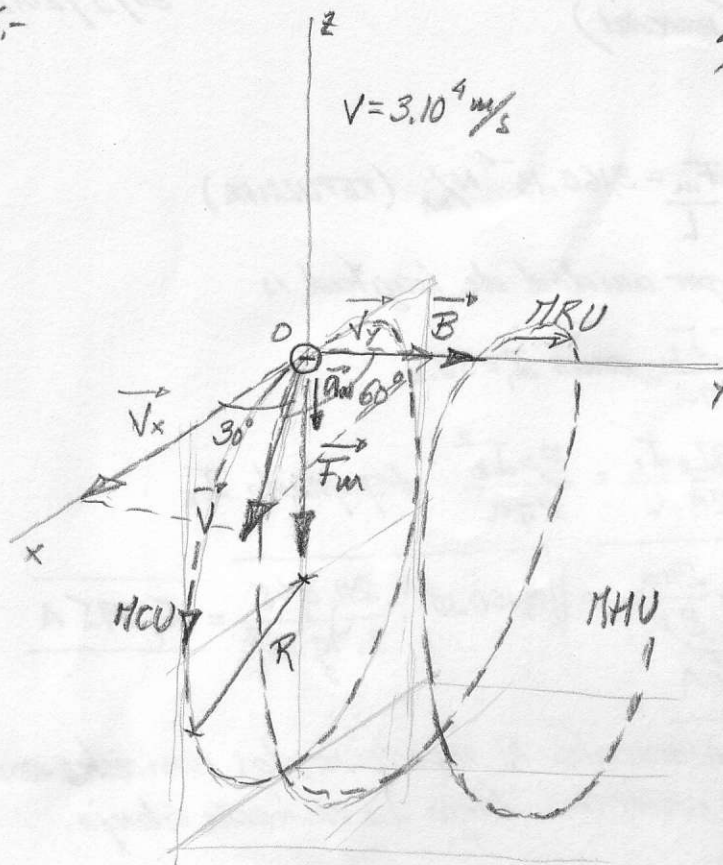 z
V = 3.10⁴ m/s
O
V⃗y
B⃗
MRU
y
V⃗x
30°
a⃗m
60°
F⃗m
V⃗
x
MCU
R
MHU